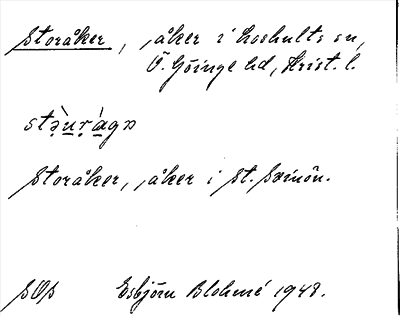 Storåker, åker i Loshults sn,
Ö. Göinge hd, Krist. l.
Storåker, åker i St.
SOS Esbjörn Blohmé 1948.